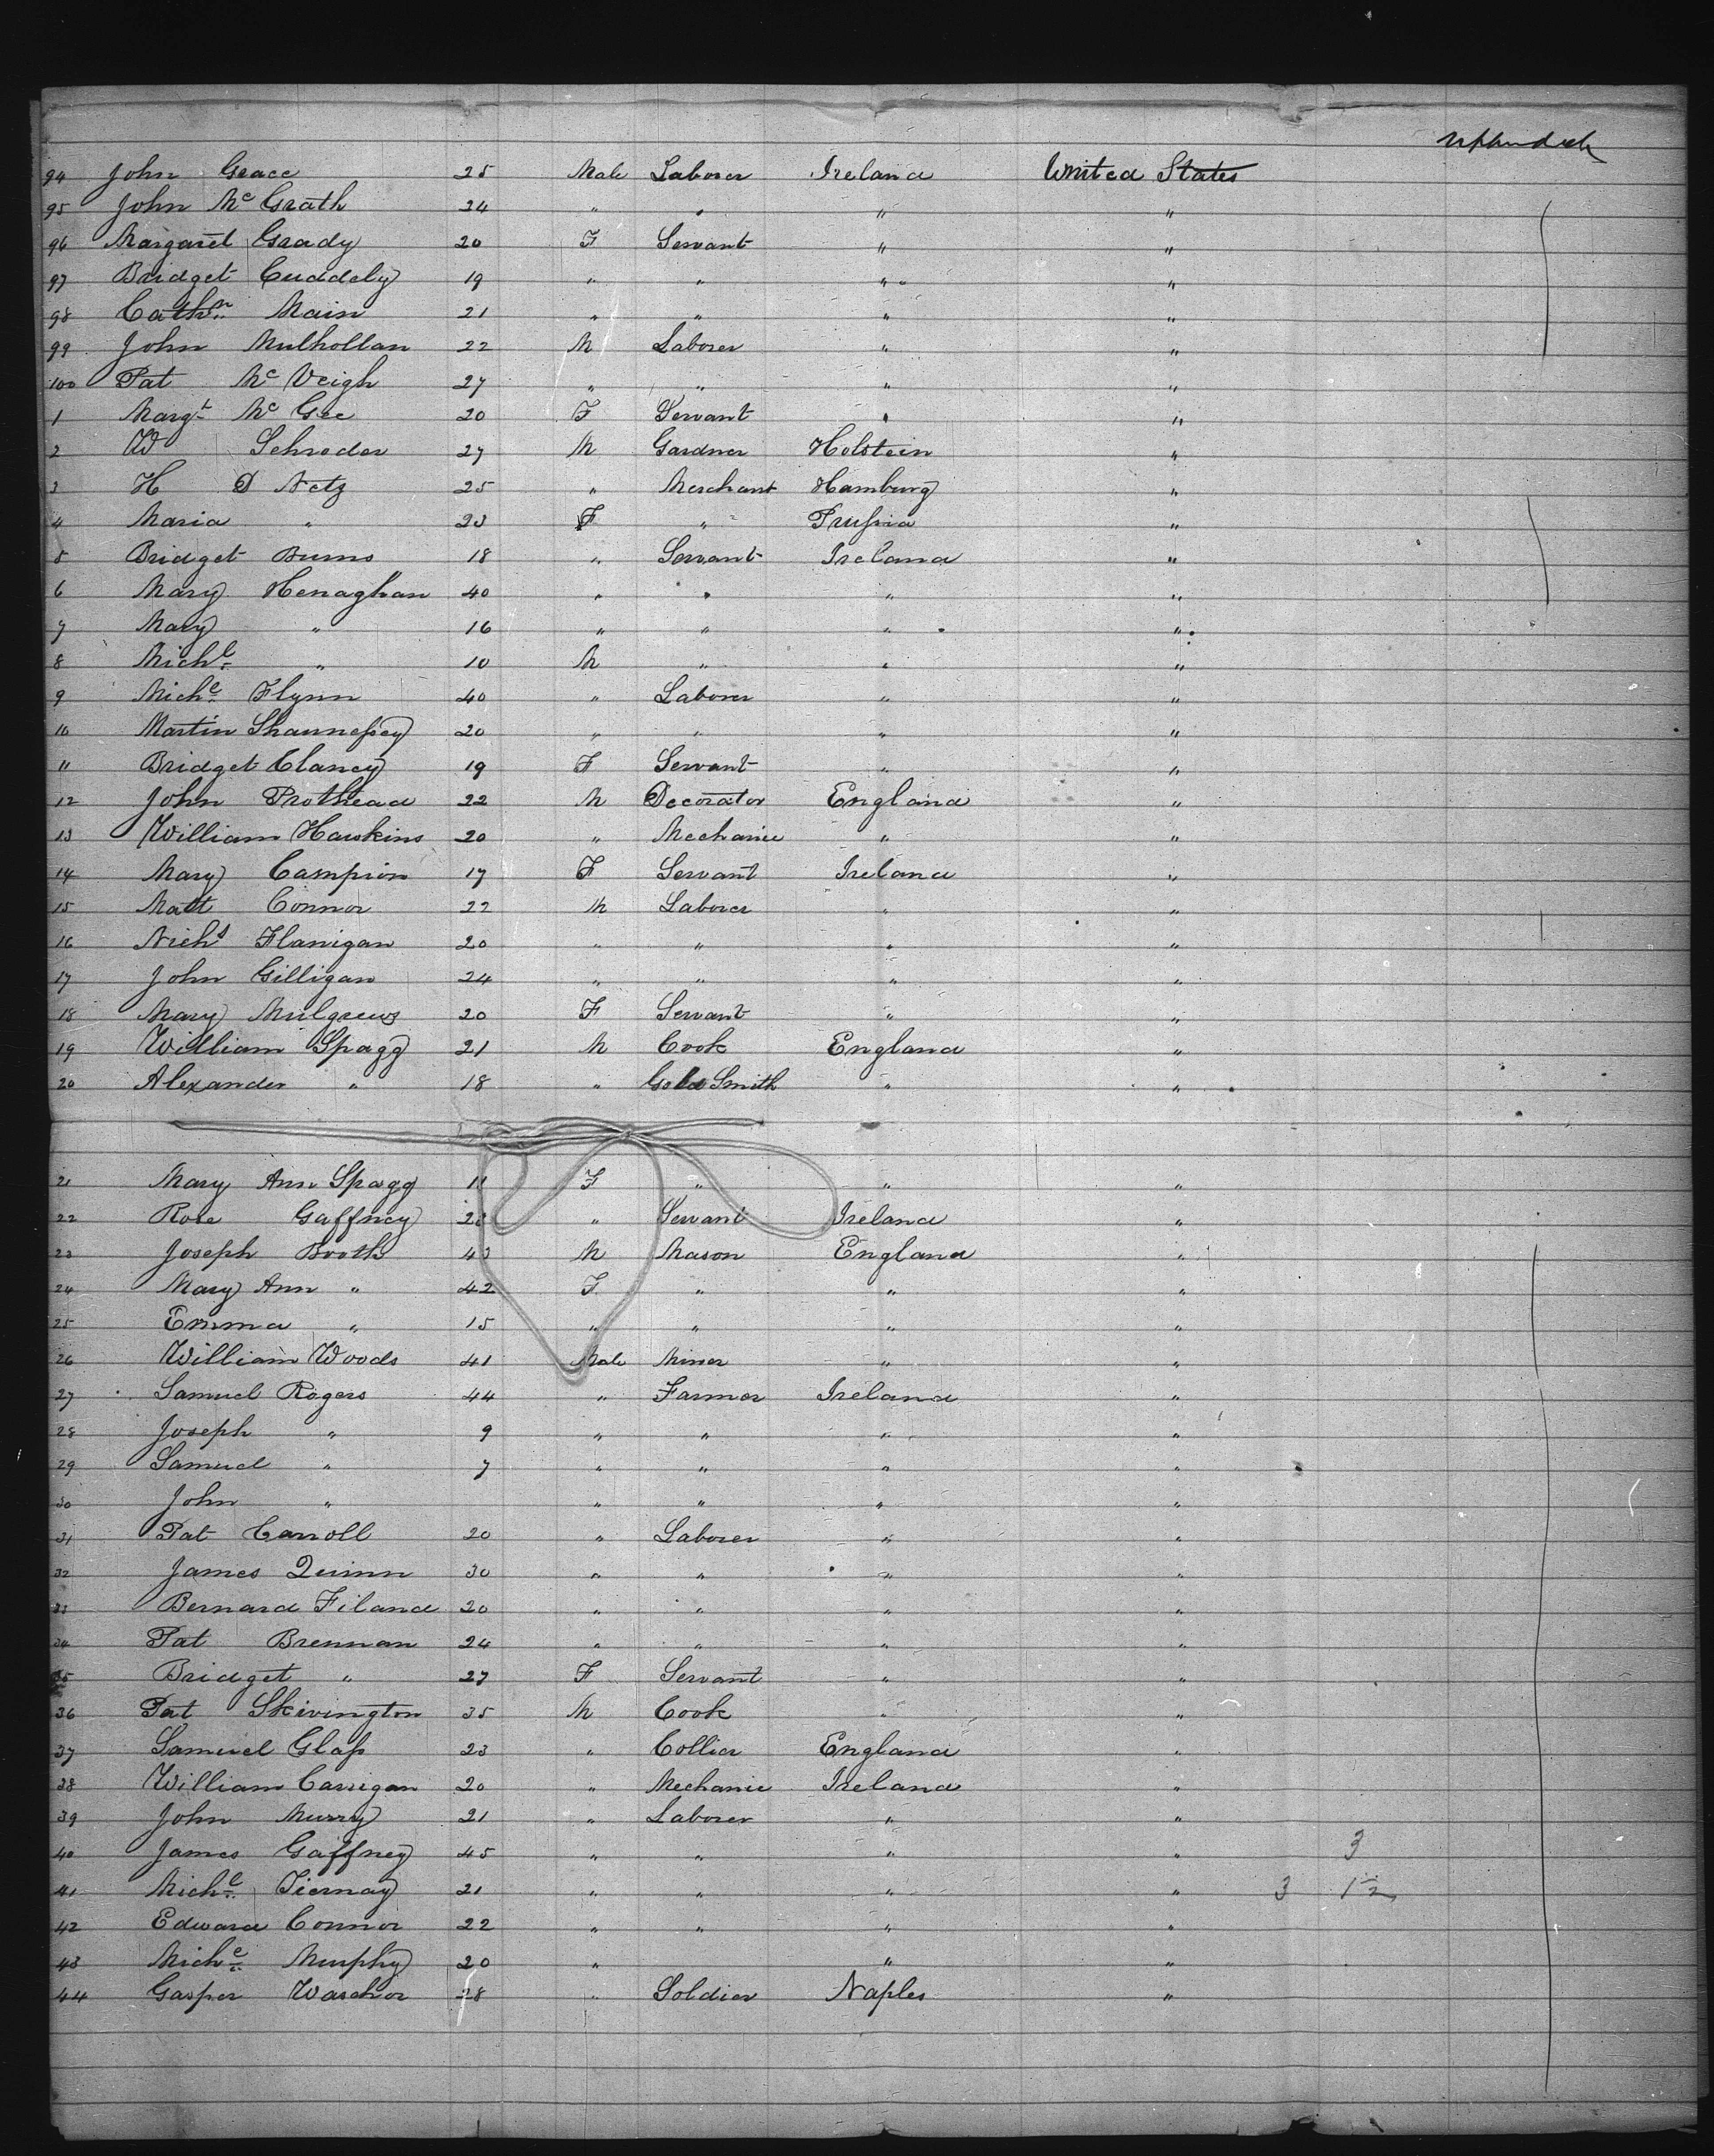 94 John Grace 25 Male Laborer Ireland United States
95 John Mc Grath 24 " " " "
96 Margaret Grady 20 F Servant " "
97 Bridget Cuddely 19 " " " "
98 Cathn Main 21 " " " "
99 John Mulhollan 22 M Laborer " "
100 Pat Mc Veigh 27 " " " "
1 Margt Mc Gee 20 F Servant " "
2 W Schroder 27 M Gardner Holstein "
3 H D Netz 25 " Merchant Hamburg "
4 Maria " 23 F " Prussia "
5 Bridget Burns 18 " Servant Ireland "
6 Mary Henaghan 40 " " " "
7 Mary " 16 " " " "
8 Michl " 10 M " " "
9 Michl Flynn 40 " Laborer " "
10 Martin Shaunessey 20 " " " "
11 Bridget Clancy 19 F Servant " "
12 John Prothead 22 M Decorator England "
13 William Hawkins 20 " Mechanic " "
14 Mary Campion 17 F Servant Ireland "
15 Matt Connor 22 M Laborer " "
16 Nichs Flanigan 20 " " " "
17 John Gilligan 24 " " " "
18 Mary Mulgrew 20 F Servant " "
19 William Spagg 21 M Cook England "
20 Alexander " 18 " Gold Smith " "
21 Mary Ann Spagg 11 F " " "
22 Rose Gaffney " Servant Ireland "
23 Joseph Booth 43 M Mason England "
24 Mary Ann " 42 F " " "
25 Emma " 15 " " " "
26 William Woods 41 Male Miner " "
27 Samuel Rogers 44 " Farmer Ireland "
28 Joseph " 9 " " " "
29 Samuel " 7 " " " "
30 John " " " " "
31 Pat Carroll 20 " Laborer " "
32 James Quinn 30 " " " "
33 Bernard Filand 20 " " " "
34 Pat Brennan 24 " " " "
35 Bridget " 27 F Servant " "
36 Pat Skivington 35 M Cook " "
37 Samuel Glass 23 " Collier England "
38 William Carrigan 20 " Mechanic Ireland "
39 John Murry 21 " Laborer " "
40 James Gaffney 45 " " " " 3
41 Michl Tiernay 21 " " " " 3 1
42 Edward Connor 22 " " " "
43 Michl Murphy 20 " " "
44 Gasper Waschor 28 " Soldier Naples "